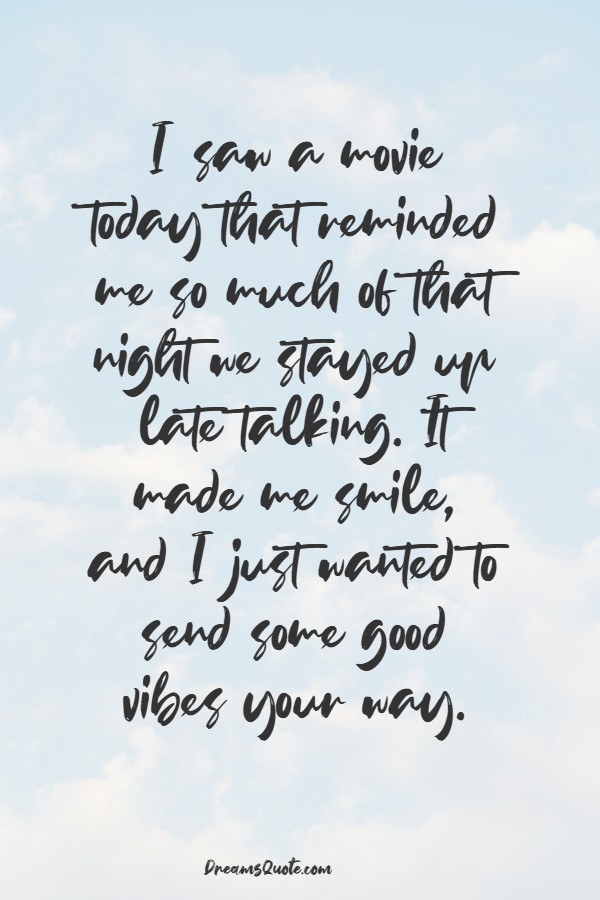 I saw a movie
today that reminded
me so much of that
night we stayed up
late talking. It
made me smile,
and I just wanted to
send some good
vibes your way.
DreamsQuote.com